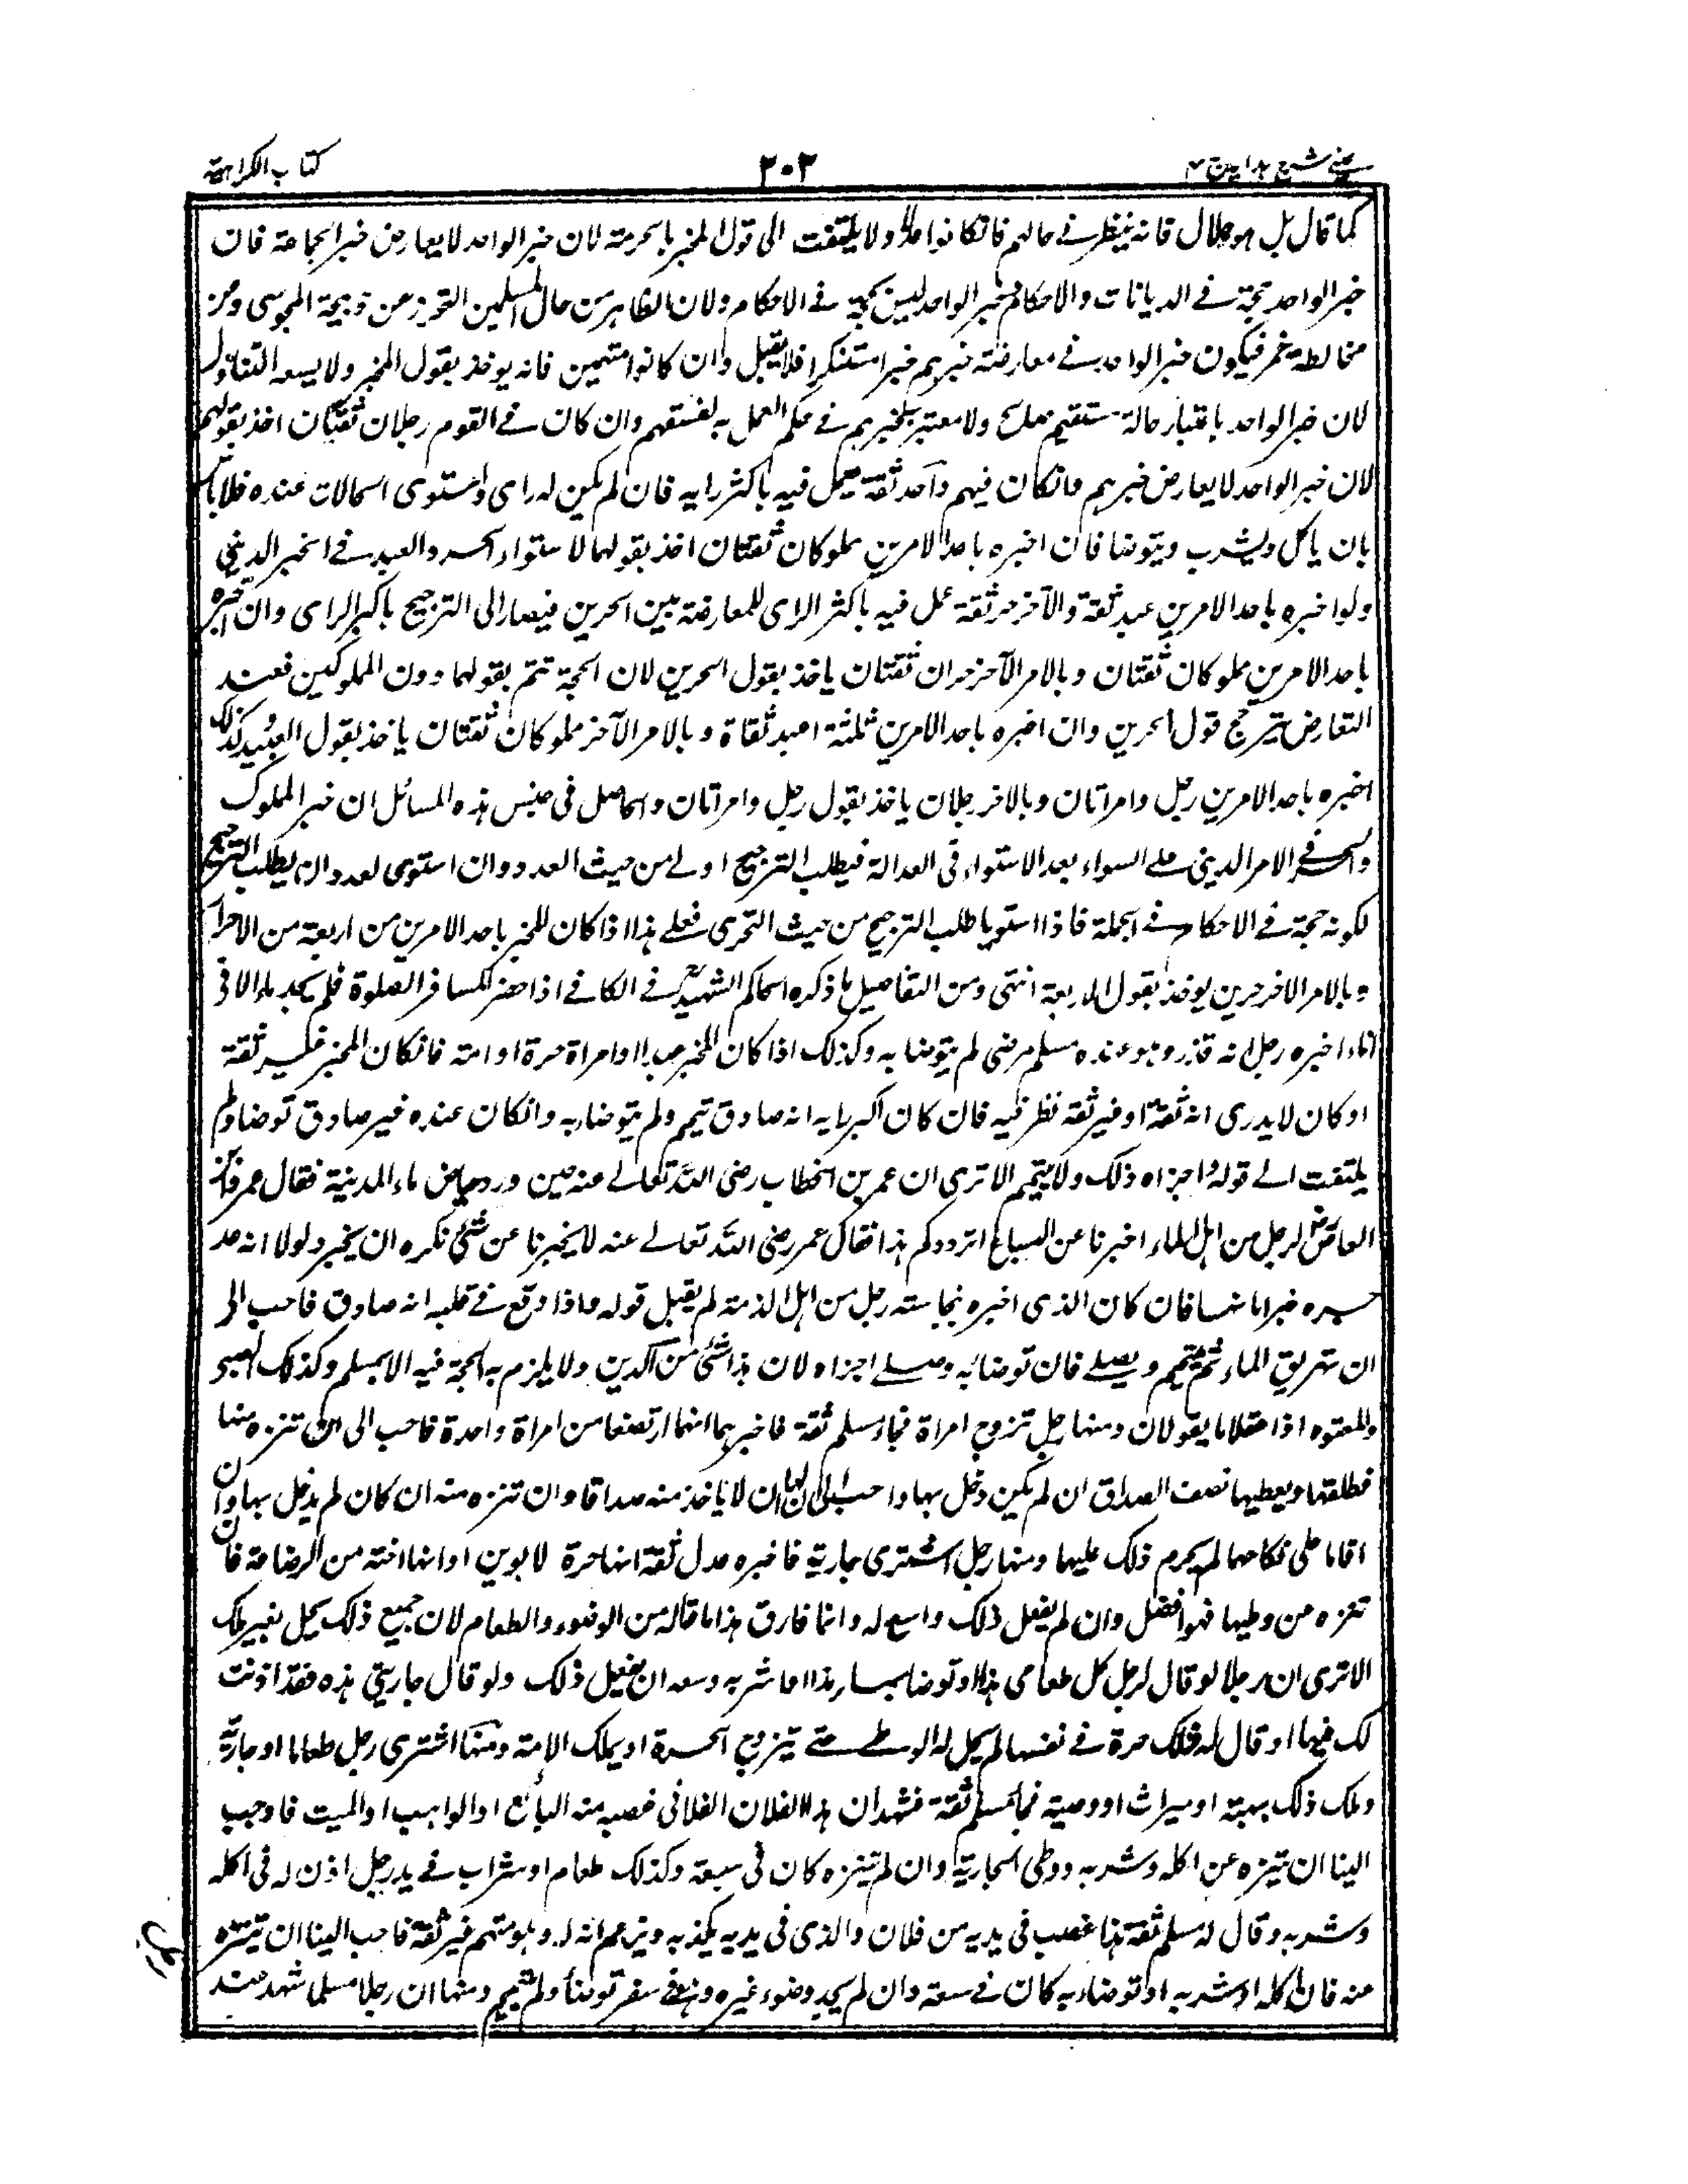 عيني شرح هداية ج ٤
٢٠٣
كتاب الكراهية
كما قال بل هو حلال فانه ينظر في حالهم فانكانوا عدولا ولا يلتفت الى قول المخبر بالحرمة لان خبر الواحد لا يعارض خبر الجماعة فان
خبر الواحد حجة في الديانات والاحكام وخبر الواحد ليس بحجة في الاحكام ولان الظاهر من حال المسلمين التحرز من ذبيحة المجوسي ومن
مخالطة خمر فيكون خبر الواحد في معارضة خبرهم خبرا مستنكرا فلا يقبل وان كانوا متهمين فانه يوخذ بقول المخبر ولا يسعه التناول
لان خبر الواحد باعتبار حالة مستقيم صالح ولا معتبر بخبرهم في حكم العمل به لفسقهم وان كان في القوم رجلان ثقتان اخذ بقولهم
لان خبر الواحد لا يعارض خبرهم فانكان فيهم واحد ثقة عمل فيه باكثر رايه فان لم يكن له راى واستوى الحالات عنده فلا باس
بان ياكل ويشرب ويتوضا فان اخبره باحد الامرين مملوكان ثقتان اخذ بقولهما لاستواء الحر والعبد في الخبر الديني
ولو اخبره باحد الامرين عبد ثقة والآخر حر ثقة عمل فيه باكثر الراى للمعارضة بين الحرين فيصار الى الترجيح باكبر الراى وان اخبره
باحد الامرين مملوكان ثقتان وبالامر الآخر حران ثقتان ياخذ بقول الحرين لان الحجة تتم بقولهما دون المملوكين فعند
التعارض يترجح قول الحرين وان اخبره باحد الامرين ثلثة اعبد ثقاة وبالامر الآخر مملوكان ثقتان ياخذ بقول العبيد كذلك
اخبره باحد الامرين رجل وامراتان وبالاخر رجلان ياخذ بقول رجل وامراتان والحاصل في جنس هذه المسائل ان خبر المملوك
والحر في الامر الديني على السواء بعد الاستواء في العدالة فيطلب الترجيح اولى من حيث العدد وان استوى لعدد يطلب الترجيح
لكونه حجة في الاحكام في الجملة فاذا استويا طلب الترجيح من حيث التحرى فعلى هذا اذا كان المخبر باحد الامرين من اربعة من الاحرار
وبالامر الاخر حرين يوخذ بقول الاربعة انتهى ومن التفاصيل ما ذكره الحاكم الشهيد في الكافى اذا حضر المسافر الصلوة فلم يجد ماء الا في
اناء اخبره رجل انه قذر وهو عنده مسلم مرضى لم يتوضا به وكذلك اذا كان المخبر عبدا او امراة حرة او امته فانكان المخبر غير ثقة
او كان لا يدرى انه ثقة او غير ثقة نظر فيه فان كان اكبر رايه انه صادق تيمم ولم يتوضا به وانكان عنده غير صادق توضا ولم
يلتفت الى قوله واجزاه ذلك ولا يتيمم الا ترى ان عمر بن الخطاب رضى الله تعالى عنه حين ورد حياض ماء المدينة فقال عمرو بن
العاص لرجل من اهل الماء اخبرنا عن السباع اتردكم هذا فقال عمر رضى الله تعالى عنه لا يخبرنا عن شئ نكره ان يخبر ولولا انه عد
خبره خبرا ما نهاه فان كان الذى اخبره بنجاسته رجل من اهل الذمة لم يقبل قوله فاذا وقع في قلبه انه صادق فاحب الى
ان تهريق الماء ثم يتيمم ويصلى فان توضا به وصلى اجزاه لان هذا شئ من الدين ولا يلزم به الحجة فيه الا بمسلم وكذلك الصبي
والمعتوه اذا عقلا ما يقولان ومنها رجل تزوج امراة فجاء مسلم ثقة فاخبرهما انهما ارتضعا من امراة واحدة فاحب الى ان تنزه منها
فطلقها ويعطيها نصف الصداق ان لم يكن دخل بها واحب الى لها ان لا ياخذ منه صداقا وان تنزه منه ان كان لم يدخل بها وان
اقاما على نكاحهما لم يحرم ذلك عليها ومنها رجل اشترى جارية فاخبره عدل ثقة انها حرة لابوين او انها اخته من الرضاعة فان
تنزه من وطيها فهو افضل وان لم يفعل ذلك واسع له وانما فارق هذا ما قاله من الوضوء والطعام لان جميع ذلك يحل بغير ملك
الا ترى ان رجلا لو قال لرجل كل طعامى هذا او توضا بماء هذا او اشربه وسعه ان يفعل ذلك ولو قال جاريتى هذه فقد اذنت
لك فيها او قال له فلك حرة في نفسها لم يحل له الوطى حتى يتزوج الحرة او يملك الامة ومنها اشترى رجل طعاما او جارية
وملك ذلك بهبته او ميراث او وصيته فجاء مسلم ثقة فشهد ان هذا الفلان الفلانى غصبه منه البائع او الواهب او الميت فاحب
الينا ان يتنزه عن اكله وشربه ووطى الجارية وان لم يتنزه كان في سعة وكذلك طعام او شراب في يد رجل اذن له في اكله
وشربه وقال له مسلم ثقة هذا غصب في يديه من فلان والذى في يديه يكذبه ويزعم انه له وهو متهم غير ثقة فاحب الينا ان يتنزه
منه فان اكله او شربه او توضا به كان في سعة وان لم يجد وضوء غيره وهو في سفر توضا ولم يتيمم ومنها ان رجلا مسلما شهد عند